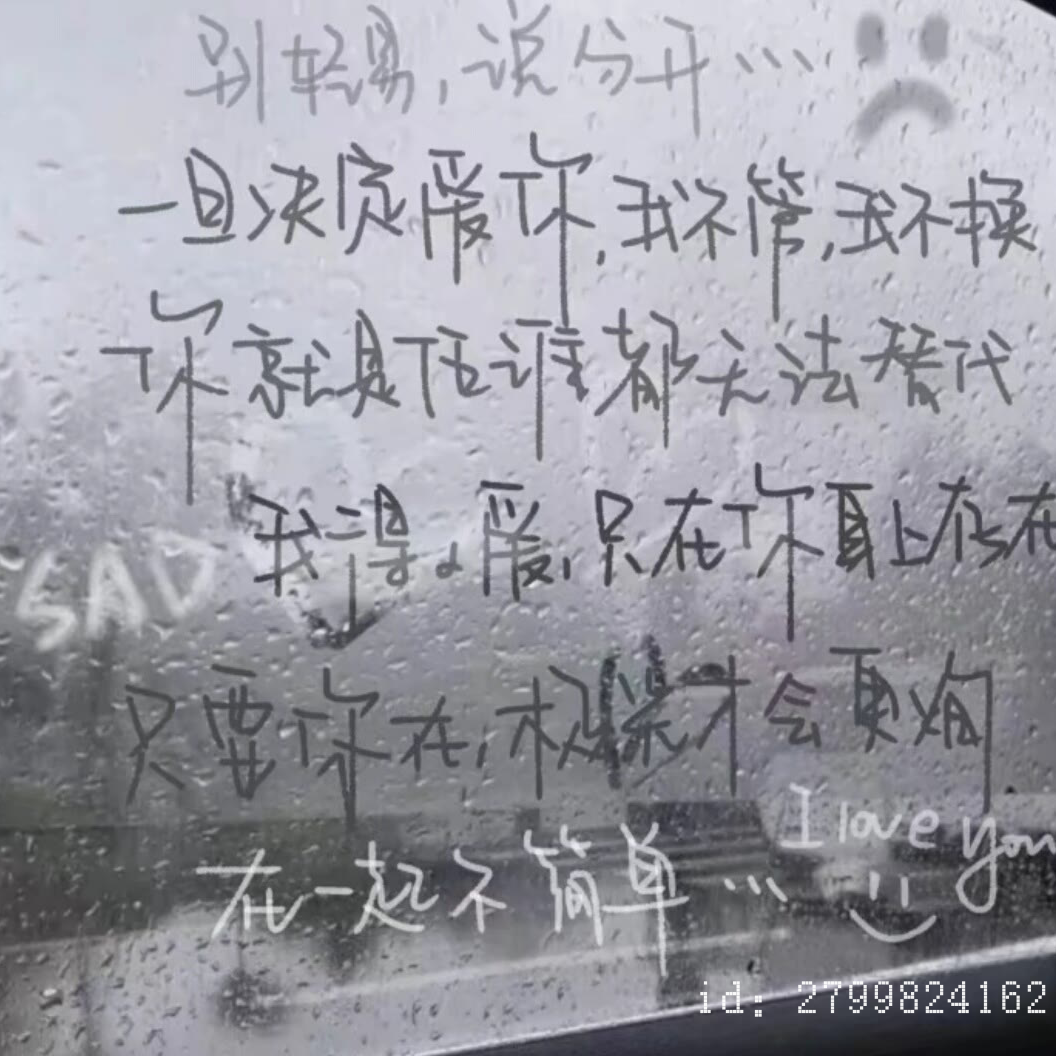 别轻易,说分开...
一旦决定爱你,我不管,我不换
你就是任谁都无法替代
我得。爱,只在你身上存在
SAD
只要你在,极深才会更炯
I love you
在一起不简单...
id: 2799824162